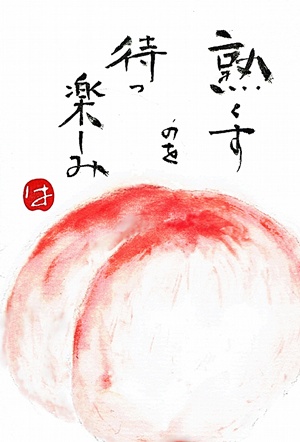 熟くす
のを
待つ
楽しみ
は